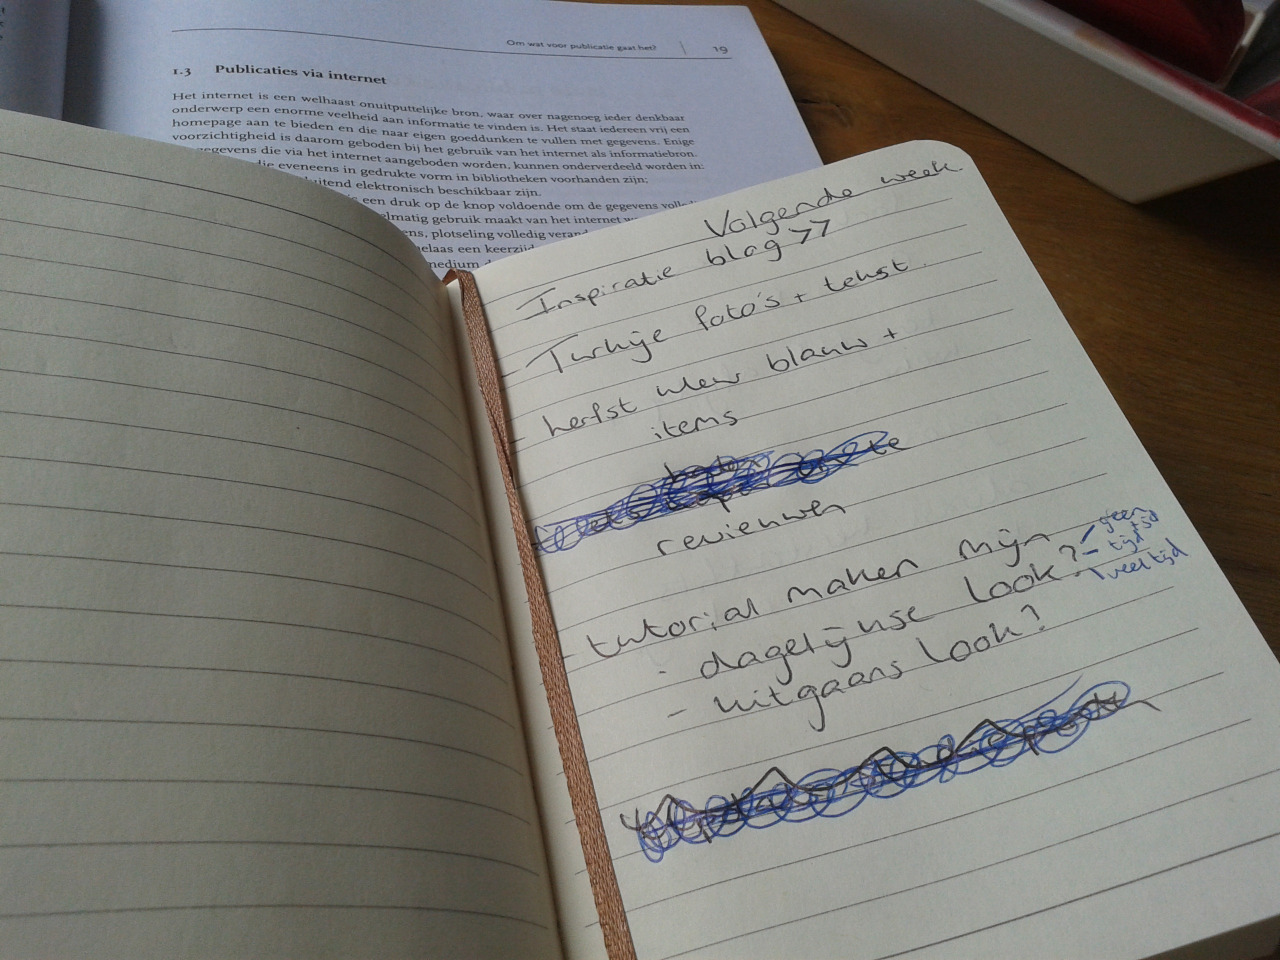 Om wat voor publicatie gaat het? | 19
1.3 Publicaties via internet
Het internet is een welhaast onuitputtelijke bron, waar over nagenoeg ieder denkbaar
onderwerp een enorme veelheid aan informatie te vinden is. Het staat iedereen vrij een
homepage aan te bieden en die naar eigen goeddunken te vullen met gegevens. Enige
voorzichtigheid is daarom geboden bij het gebruik van het internet als informatiebron.
gegevens die via het internet aangeboden worden, kunnen onderverdeeld worden in:
die eveneens in gedrukte vorm in bibliotheken voorhanden zijn;
uitend elektronisch beschikbaar zijn.
een druk op de knop voldoende om de gegevens
elmatig gebruik maakt van het internet
ens, plotseling volledig
elaas een
medium
Volgende week
Inspiratie blog >>
Turkije foto's + tekst
- herfst kleur blauw +
items
reviewen
tutorial maken mijn
- dagelijkse look?
geen tijd
- tijd
veel tijd
- uitgaans look?